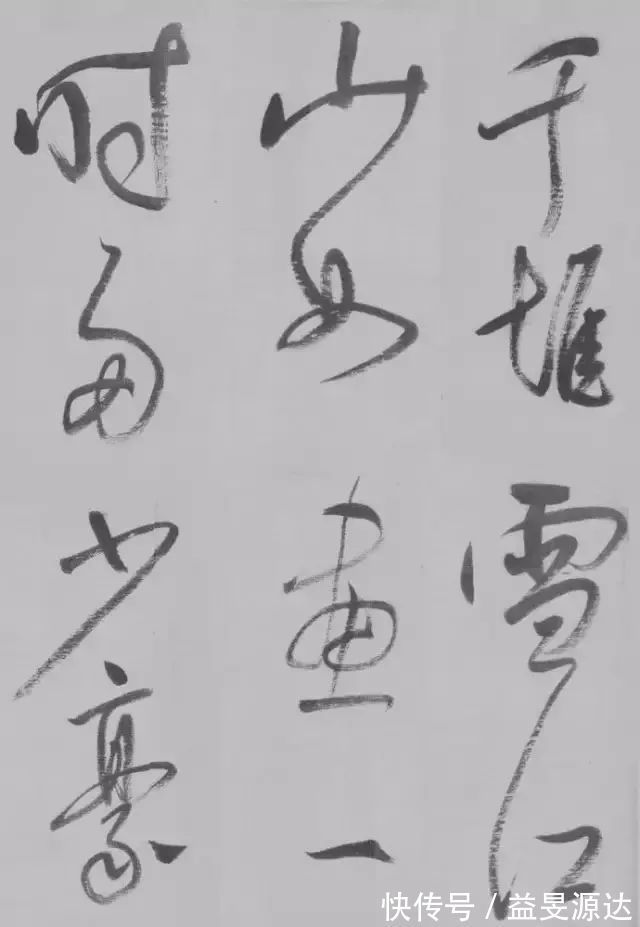 千堆雪江
山如画一
时多少豪
快传号/益旻源达